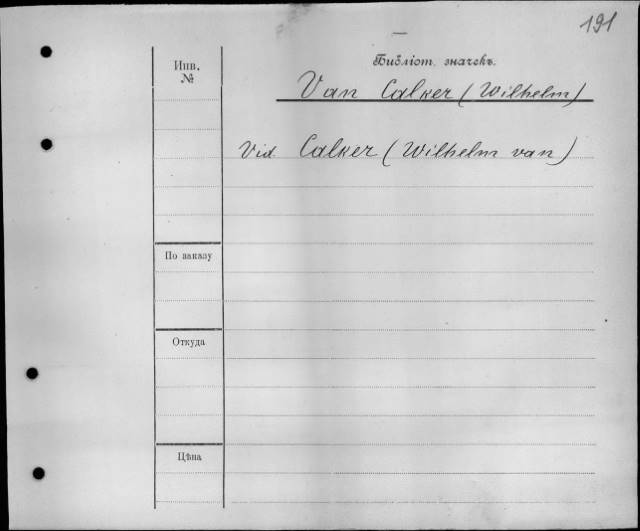 191
Библіот. значекъ.
Инв.
№
Van Calker (Wilhelm)
Vid. Calker (Wilhelm van)
По заказу
Откуда
Цѣна